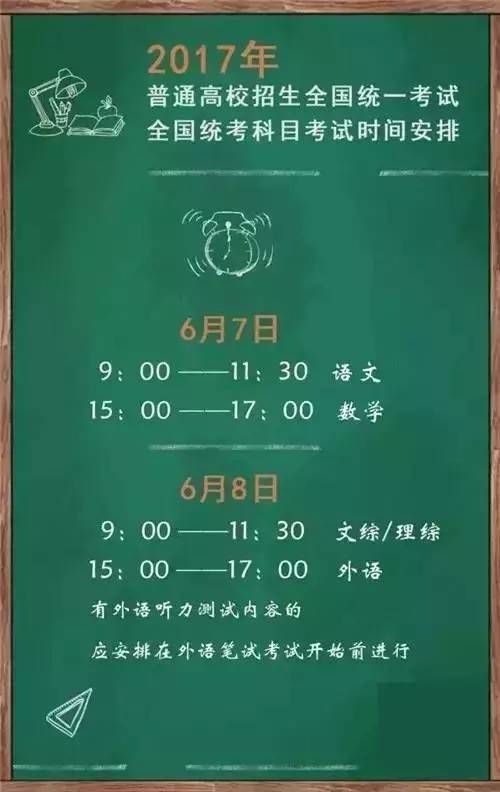 2017年
普通高校招生全国统一考试
全国统考科目考试时间安排
6月7日
9：00 ——11：30 语文
15：00 ——17：00 数学
6月8日
9：00 ——11：30 文综/理综
15：00 ——17：00 外语
有外语听力测试内容的
应安排在外语笔试考试开始前进行